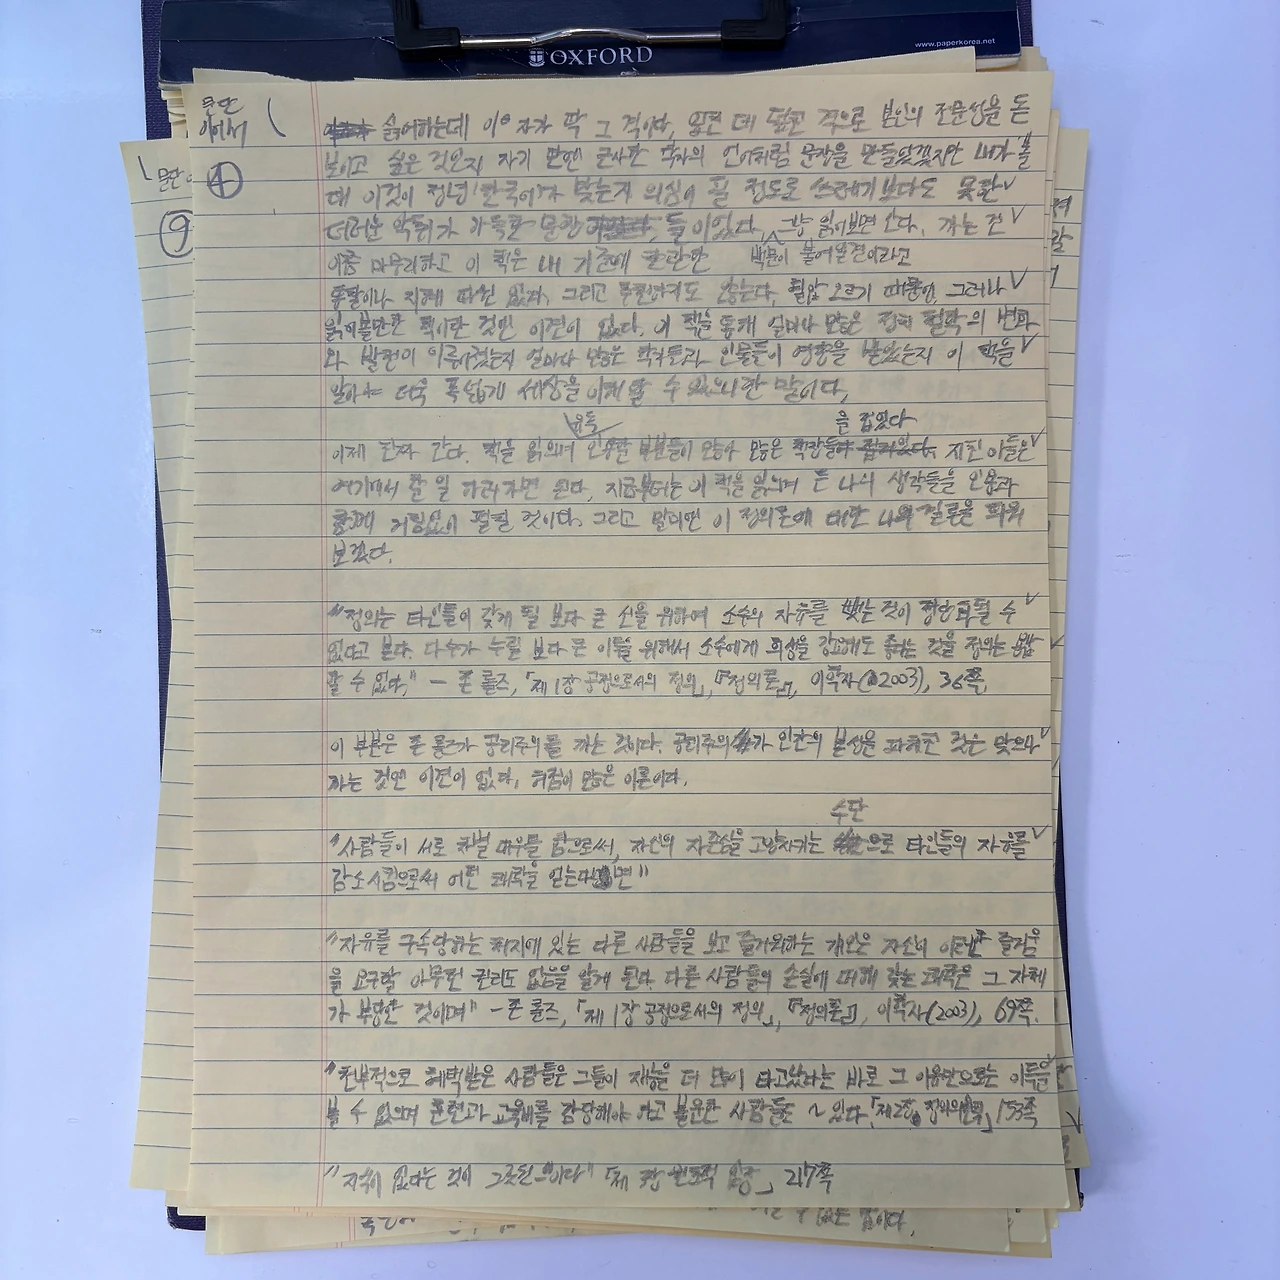 OXFORD
www.paperkorea.net
문단
이어서
④
⑨
싫어하는데 이 자가 딱 그 격이다. 일견 데 덮곤 격으로 본인의 전문성을 돋
보이고 싶은 것인지 자기 딴엔 근사한 학자의 언어처럼 문장을 만들었겠지만 내가 볼
때 이것이 정녕 '한국어'가 맞는지 의심이 될 정도로 쓰레기보다도 못한
더러운 악취가 가득한 문장들이었다. 그냥 읽어보면 안다. 까는 건
백문이 불여일견이라고
이쯤 마무리하고 이 책은 내 기준에 한관만
통찰이나 지혜 따윈 없다. 그리고 추천하지도 않는다. 혈압 오르기 때문에. 그러나
읽어볼만한 책이란 것엔 이견이 없다. 이 책을 통해 얼마나 많은 정치 철학의 변화
와 발전이 이루어졌는지 얼마나 많은 학자들과 인물들이 영향을 받았는지 이 책을
알아야 더욱 폭넓게 세상을 이해할 수 있으니란 말이다.
유독
을 접었다
이제 진짜 간다. 책을 읽으며 인용할 부분들이 많아 많은 책장들 지친 이들은
여기까서 할 일 하러 가면 된다. 지금부터는 이 책을 읽으며 든 나의 생각들을 인용과
함께 거침없이 펼칠 것이다. 그리고 말미엔 이 정의론에 대한 나의 결론을 피워
보겠다.
"정의는 타인들이 갖게 될 보다 큰 선을 위하여 소수의 자유를 뺏는 것이 정당화될 수
없다고 본다. 다수가 누릴 보다 큰 이득을 위해서 소수에게 희생을 강요해도 좋다는 것을 정의는 용납
할 수 없다." - 존 롤즈, 「제1장 공정으로서의 정의」, 『정의론』, 이학사(2003), 36쪽
이 부분은 존 롤즈가 공리주의를 까는 것이다. 공리주의가 인간의 본성을 파헤친 것은 맞으나
까는 것엔 이견이 없다. 허점이 많은 이론이다.
수단
"사람들이 서로 차별 대우를 함으로써, 자신의 자존심을 고양시키는 으로 타인들의 자유를
감소시킴으로써 어떤 쾌락을 얻는다면"
"자유를 구속당하는 처지에 있는 다른 사람들을 보고 즐거워하는 개인은 자신이 이러한 즐거움
을 요구할 아무런 권리도 없음을 알게 된다. 다른 사람들의 손실에 의해 갖는 쾌락은 그 자체
가 부당한 것이며" - 존 롤즈, 「제1장 공정으로서의 정의」, 『정의론』, 이학사(2003), 69쪽.
"천부적으로 혜택받은 사람들은 그들이 재능을 더 많이 타고났다는 바로 그 이유만으로는 이득을
볼 수 없으며 훈련과 교육비를 감당해야 하고 불운한 사람들도 ~ 있다. 「제2장, 정의의 원칙」 153쪽
"지식이 없다는 것이 그릇된" 「제3장 원초적 입장」 217쪽